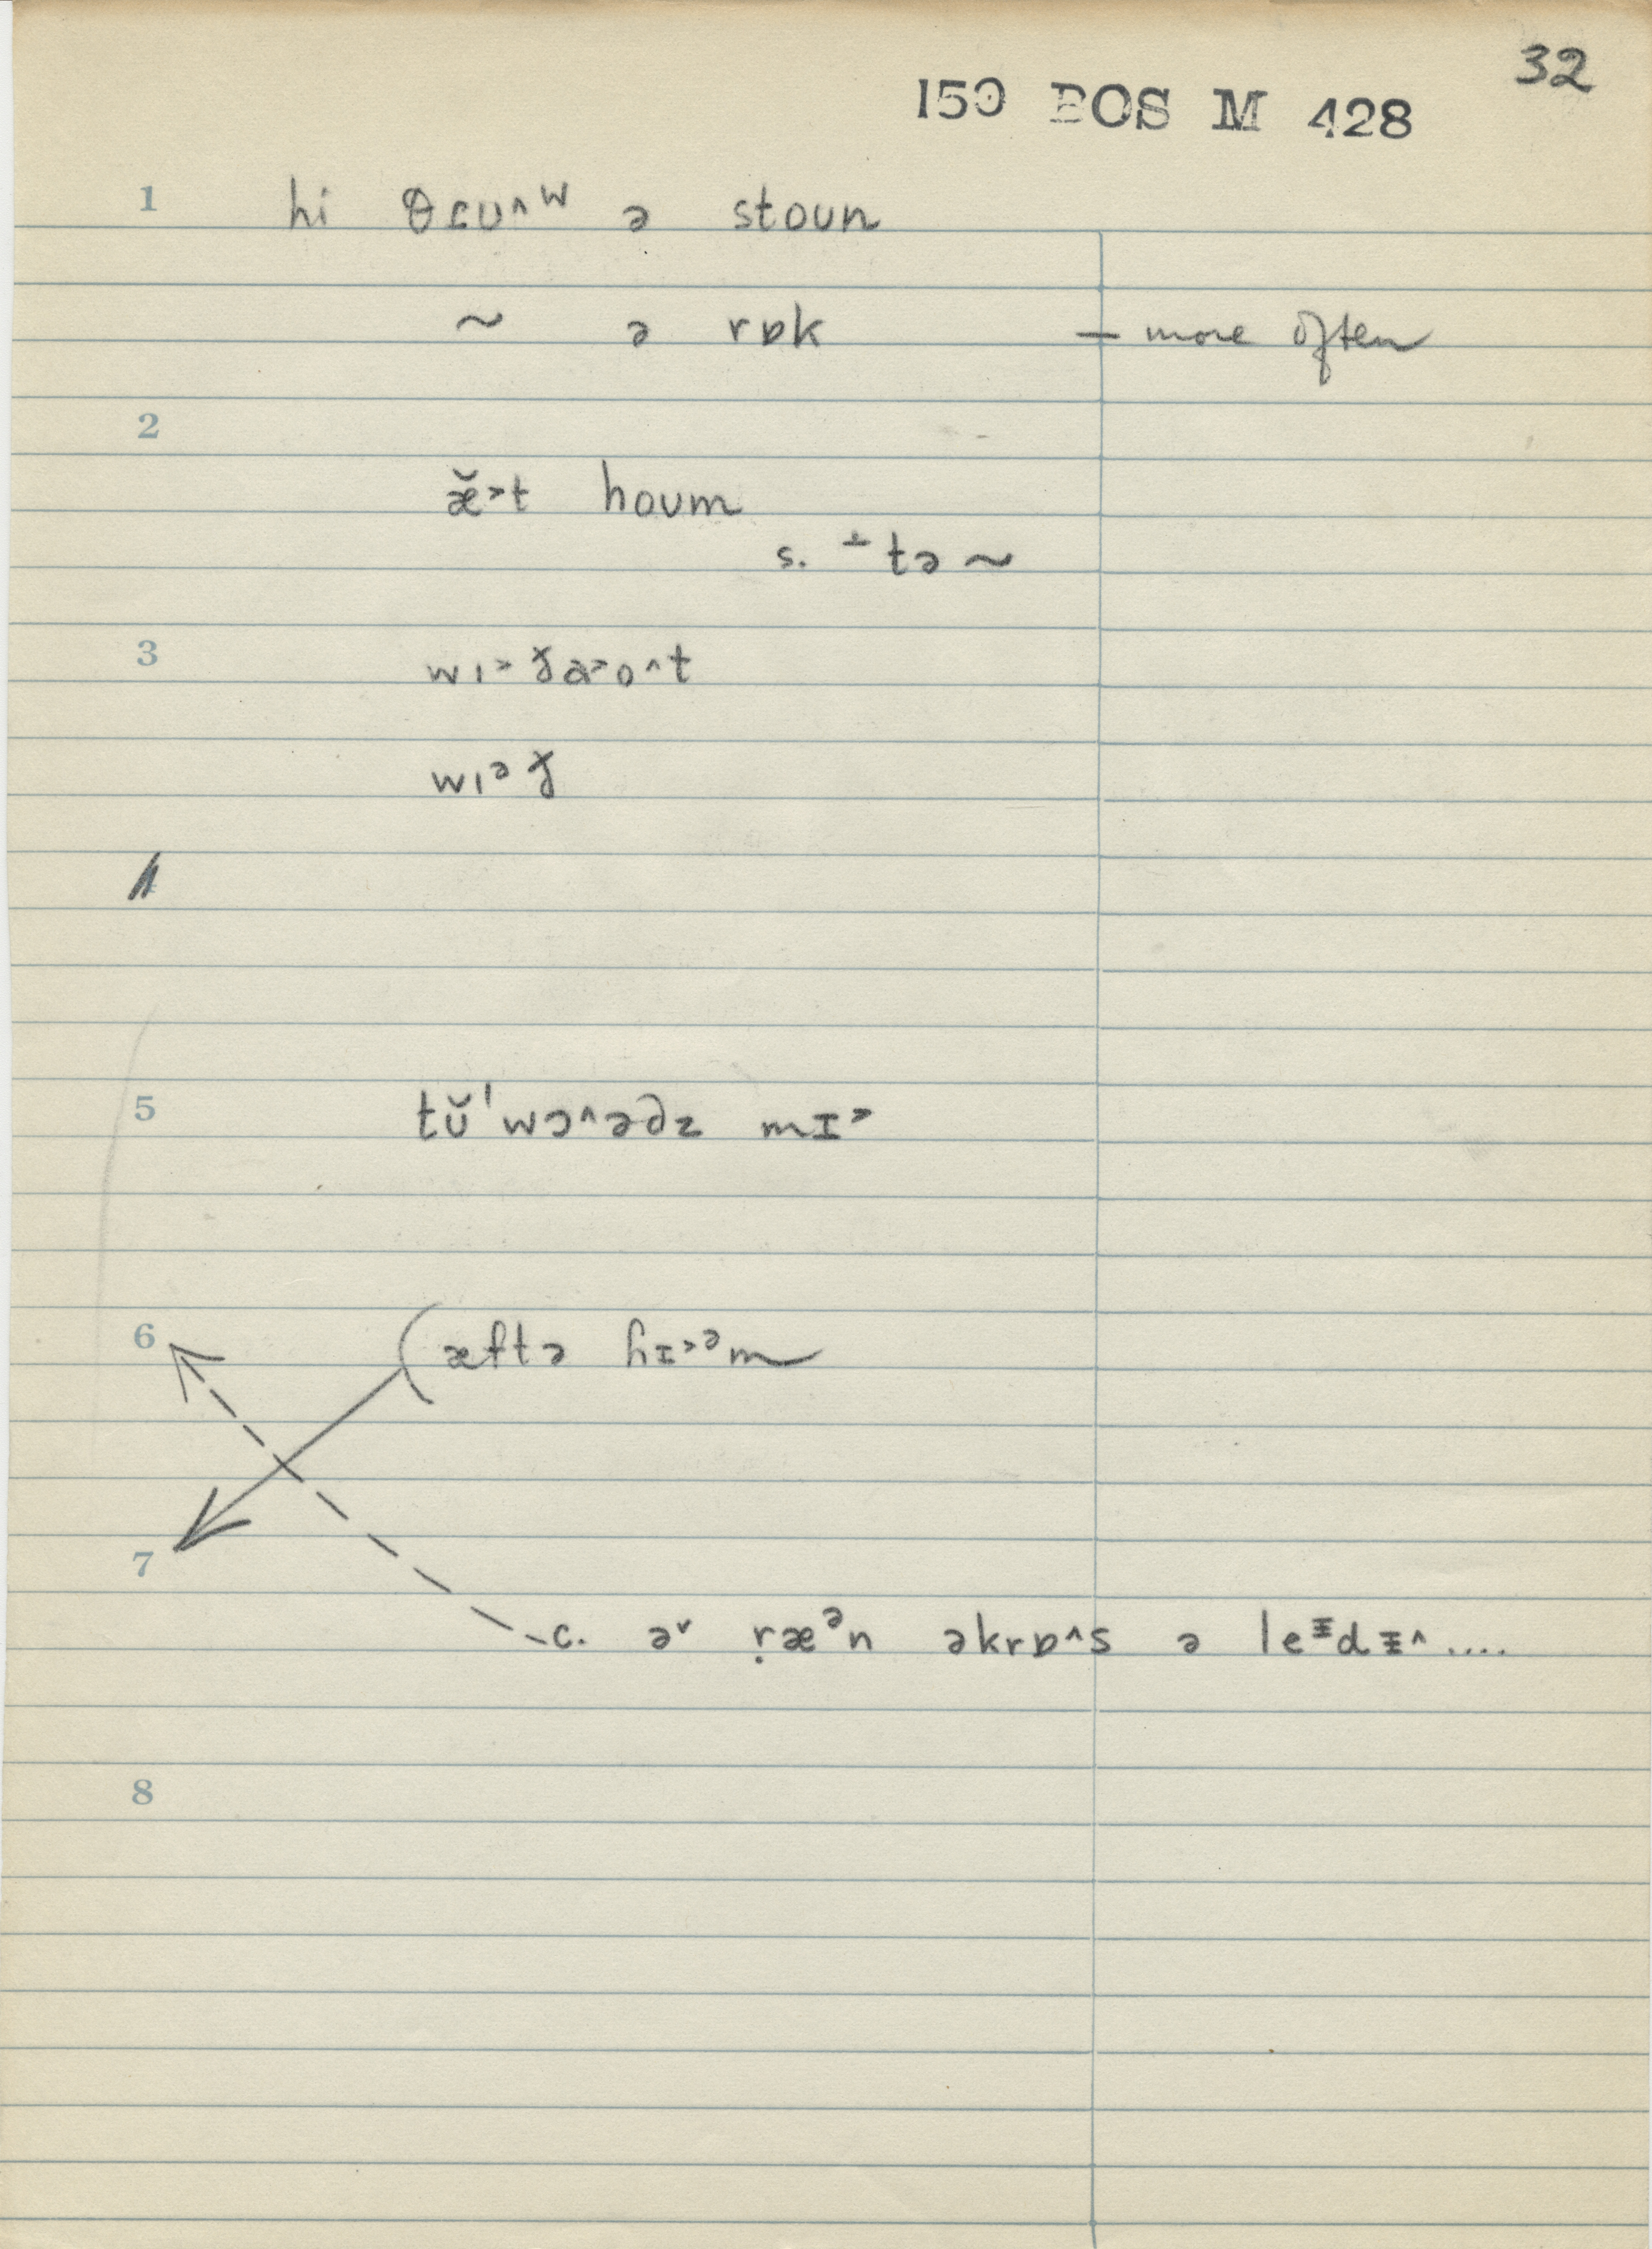 32
150 BOS M 428
1 hi θɾʊ^ʷ ə stoun
~ ə rɒk — more often
2
æ̆˃t houm
s. ⊥tə ~
3 wɪ˃ɣ̵a˃o^t
wɪᵊɣ̵
5 tŭ'wɔ^ədz mɪ˃
6 (æftə hɪ˃ᵊm
7
c. əʳ ṛæᵊn əkrɒ^s ə leᵻdᵻ^....
8